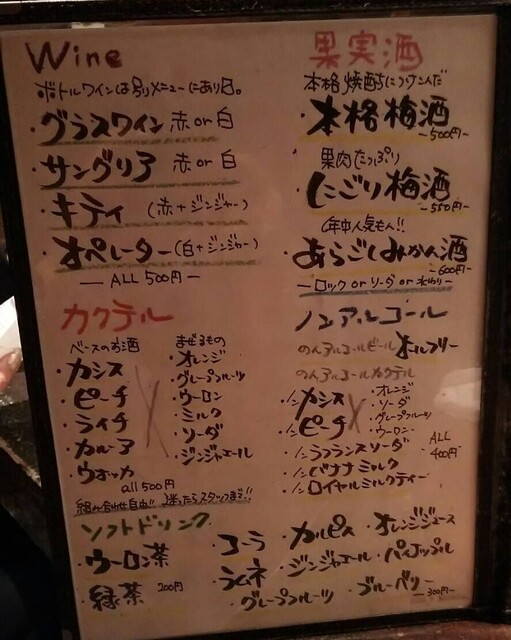 Wine
ボトルワインは別メニューにあり〼。
・グラスワイン 赤 or 白
・サングリア 赤 or 白
・キティ (赤+ジンジャー)
・オペレーター (白+ジンジャー)
ALL 500円
果実酒
本格焼酎につけこんだ
・本格梅酒
~500円~
果肉たっぷり
・にごり梅酒
~550円~
年中人気もん!!
・あらごしみかん酒
~600円~
ロック or ソーダ or 水わり
カクテル
ベースのお酒
・カシス
・ピーチ
・ライチ
・カルーア
・ウオッカ
まぜるもの
・オレンジ
・グレープフルーツ
・ウーロン
・ミルク
・ソーダ
・ジンジャエール
all 500円
組み合せ自由!! 迷ったらスタッフまで!!
ノンアルコール
のんアルコールビール オールフリー
のんアルコールカクテル
・ノンカシス
・ノンピーチ
・オレンジ
・ソーダ
・グレープフルーツ
・ウーロン
・ノンラフランスソーダ
・ノンバナナミルク
・ノンロイヤルミルクティー
ALL
400円
ソフトドリンク
・ウーロン茶
・緑茶 200円
・コーラ ・カルピス ・オレンジジュース
・ラムネ ・ジンジャエール ・パイナップル
・グレープフルーツ ・ブルーベリー
300円